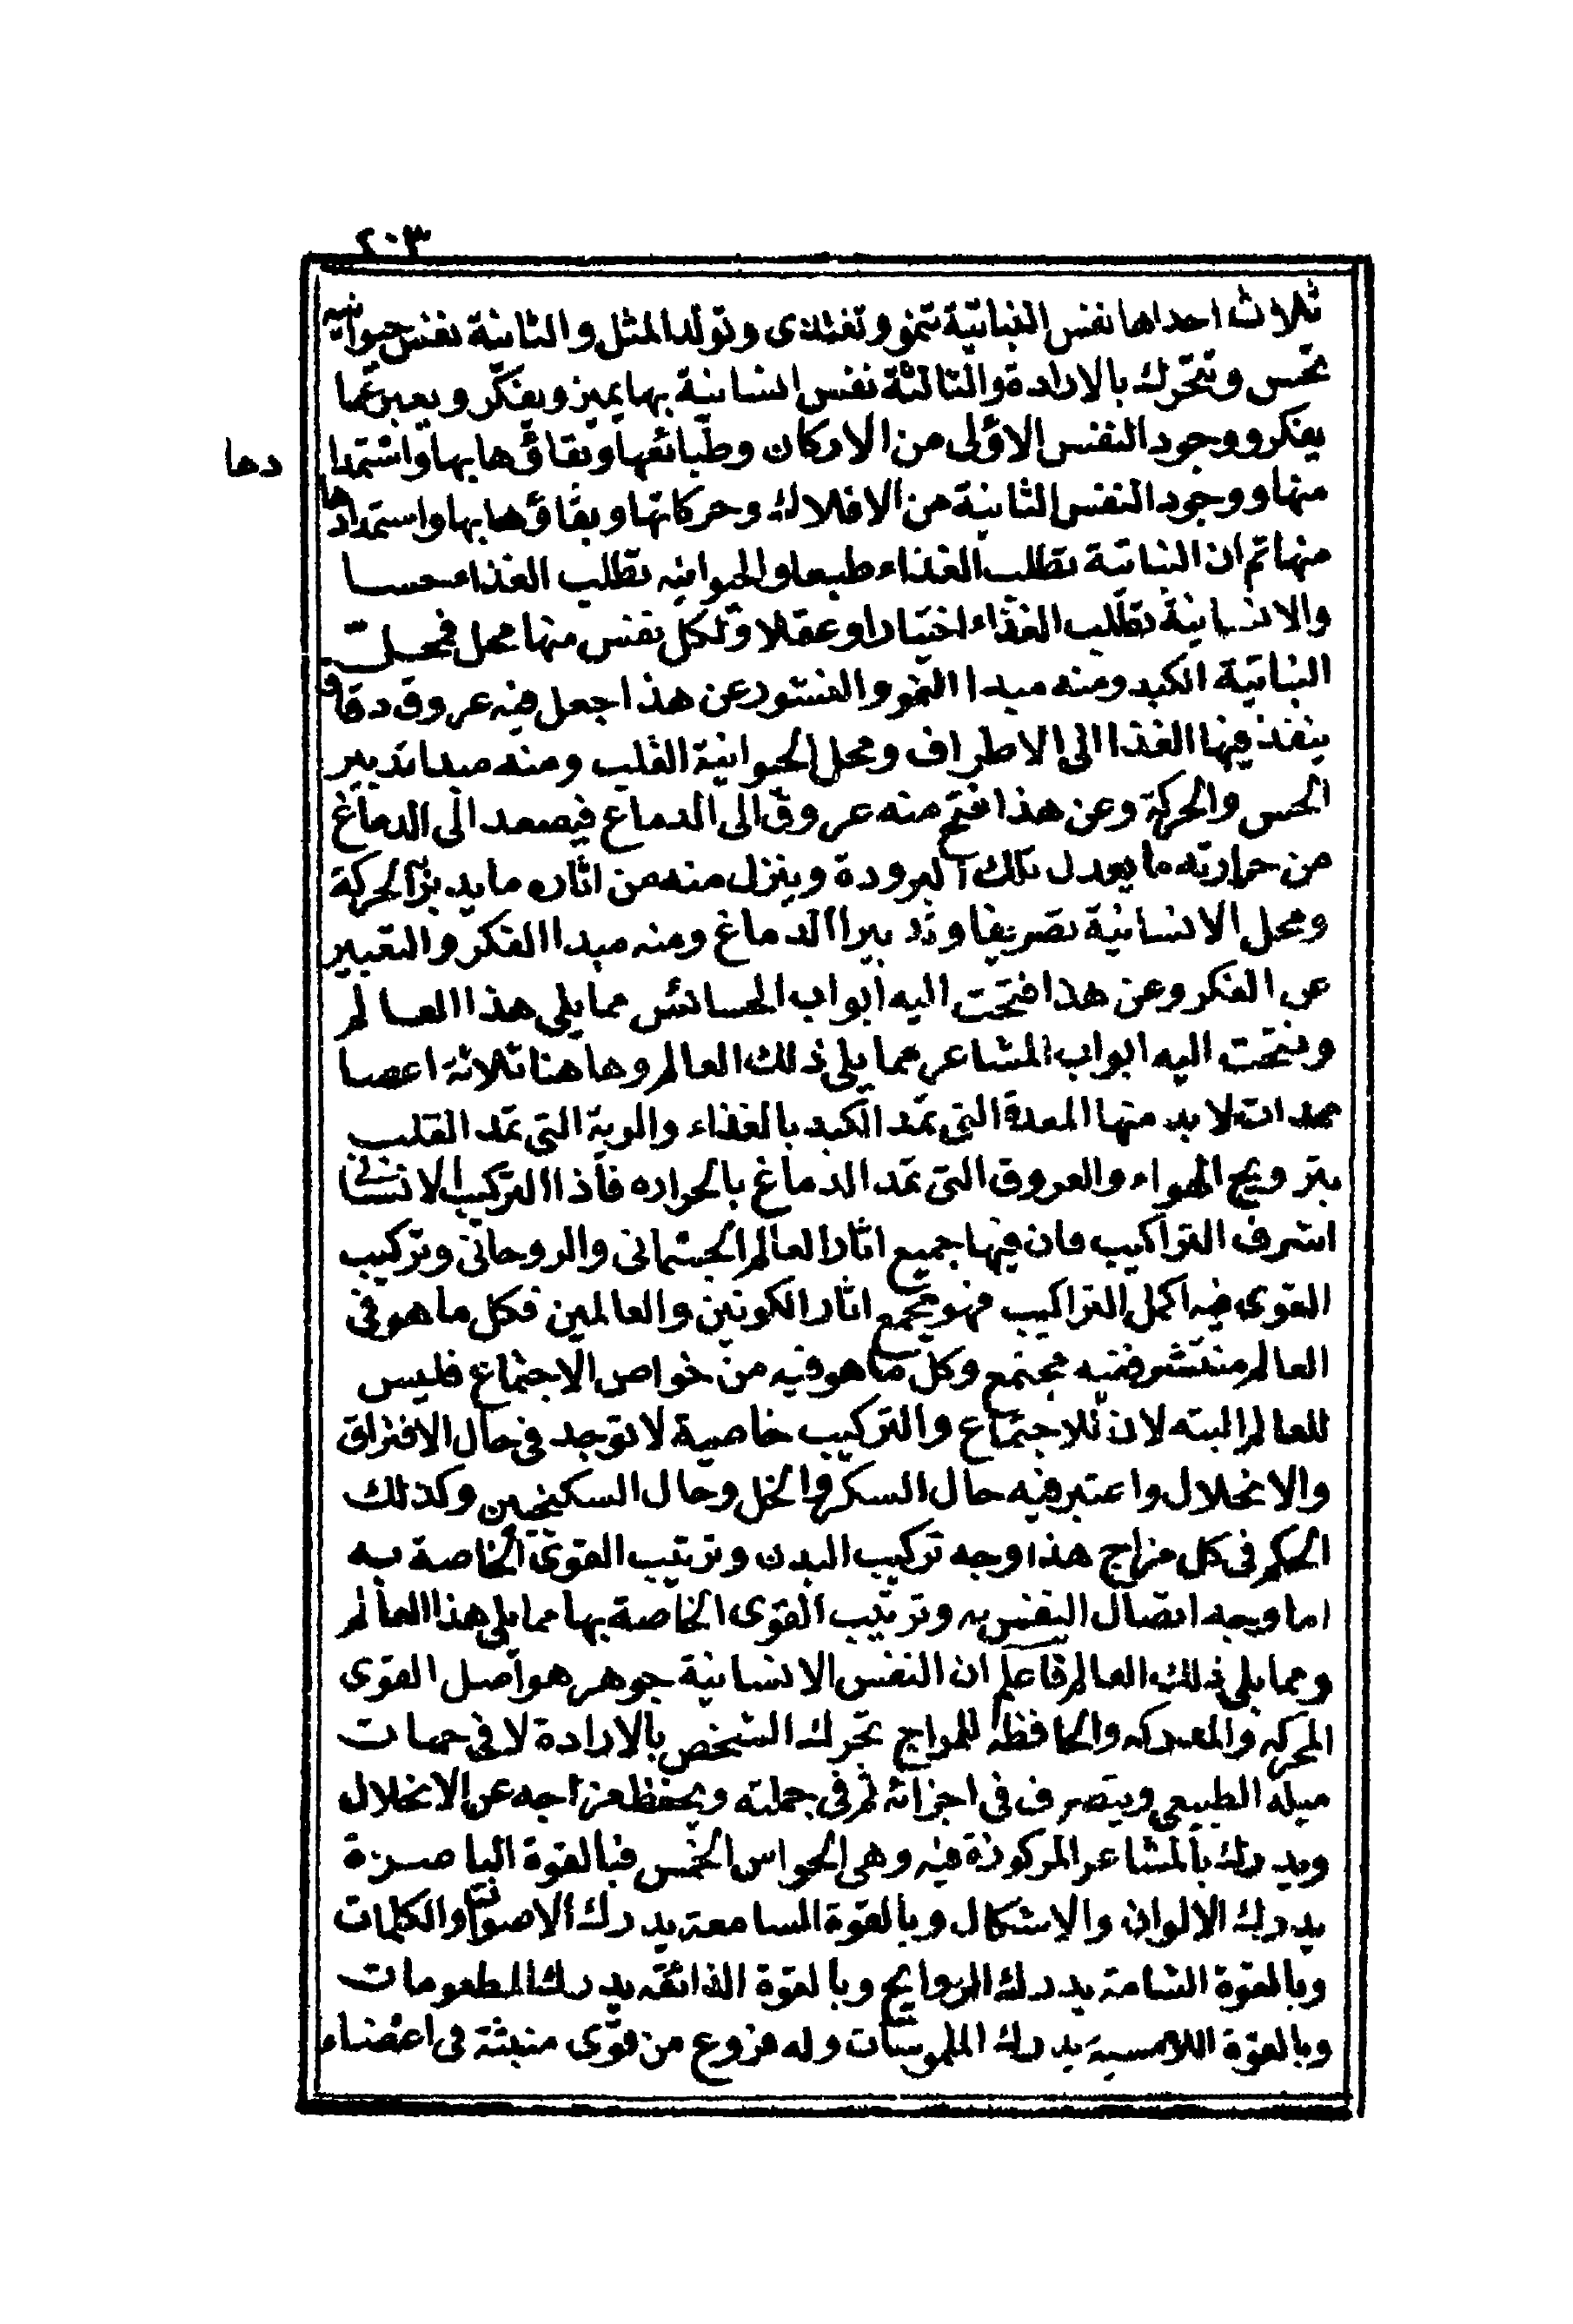 ٢٠٣
ثلاث احداها نفس النباتية تنمو وتغتذى وتولد المثل والثانية نفس حيوانية
تحس وتتحرك بالارادة والثالثة نفس انسانية بها يميز ويفكر ويعبر عما
يفكر ووجود النفس الاولى من الاركان وطبائعها وبقاؤها بها واستمدا دها
منها ووجود النفس الثانية من الافلاك وحركاتها وبقاؤها بها واستمدادها
منها ثم ان النباتية تطلب الغذاء طبعا والحيوانيه تطلب الغذاء حسا
والانسانية تطلب الغذاء اختيارا وعقلا ولكل نفس منها محل فمحل
النباتية الكبد ومنه مبدا النمو والنشو وعن هذا جعل فيه عروق دقاق
ينفذ فيها الغذا الى الاطراف ومحل الحيوانية القلب ومنه مبدا تدبير
الحس والحركة وعن هذا فتح منه عروق الى الدماغ فيصعد الى الدماغ
من حرارته ما يعدل تلك البرودة وينزل منه من اثاره ما يدبر الحركة
ومحل الانسانية تصريفا وتدبيرا الدماغ ومنه مبدا الفكر والتعبير
عن الفكر وعن هذا فتحت اليه ابواب الحسائس مما يلى هذا العالم
وفتحت اليه ابواب المشاعر مما يلى ذلك العالم وهاهنا ثلاثة اعضا
ممدات لا بد منها المعدة التى تمد الكبد بالغذاء والرية التى تمد القلب
بترويح الهواء والعروق التى تمد الدماغ بالحراره فاذا التركيب الانسانى
اشرف التراكيب فان فيها جميع اثار العالم الجسمانى والروحانى وتركيب
القوى فيه اكمل التراكيب فهو مجمع اثار الكونين والعالمين فكل ما هو فى
العالم منتشر ففيه مجتمع وكل ما هو فيه من خواص الاجتماع فليس
للعالم البته لان للاجتماع والتركيب خاصية لا توجد فى حال الافتراق
والانحلال واعتبر فيه حال السكر والخل وحال السكنجبين وكذلك
الحكم فى كل مزاج هذا وجه تركيب البدن وترتيب القوى الخاصة به
اما وجه اتصال النفس به وترتيب القوى الخاصة بها مما يلى هذا العالم
ومما يلى ذلك العالم فاعلم ان النفس الانسانية جوهر هو اصل القوى
المحركه والمدركه والحافظه للمزاج تحرك الشخص بالارادة لا فى جهات
ميله الطبيعى ويتصرف فى اجزائه ثم فى جملته ويحفظ مزاجه عن الانحلال
ويدرك بالمشاعر المركوزة فيه وهى الحواس الخمس فبالقوة الباصرة
يدرك الالوان والاشكال وبالقوة السامعة يدرك الاصوات والكلمات
وبالقوة الشامة يدرك الروايح وبالقوة الذائقه يدرك المطعومات
وبالقوة اللامسية يدرك الملموسات وله فروع من قوى منبثة فى اعضاء